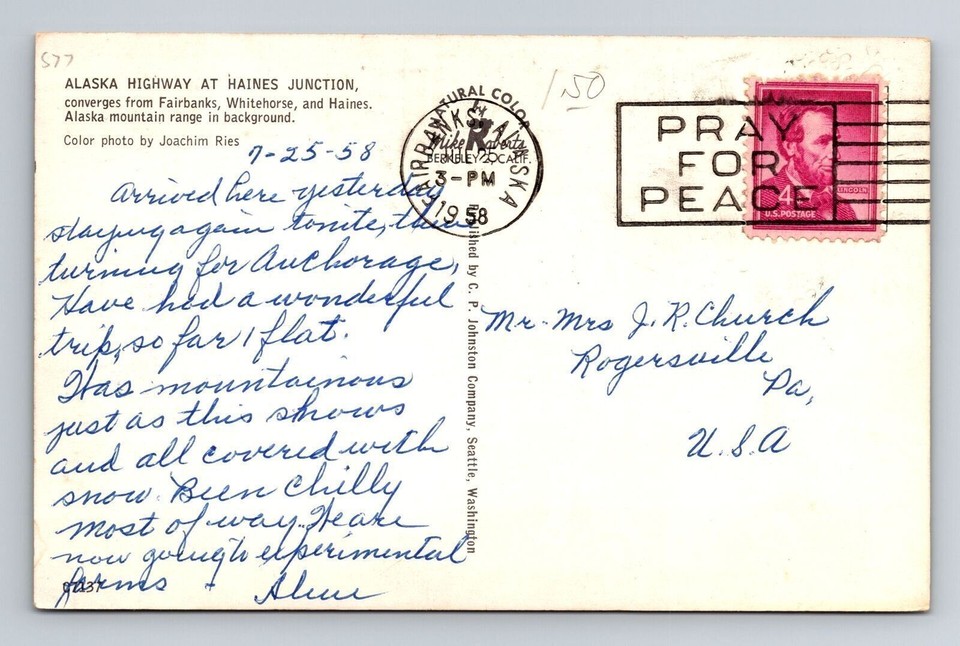 577
ALASKA HIGHWAY AT HAINES JUNCTION,
converges from Fairbanks, Whitehorse, and Haines.
Alaska mountain range in background.
Color photo by Joachim Ries
7-25-58
Arrived here yesterday
staying again tonite, then
turning for Anchorage,
Have had a wonderful
trip, so far 1 flat.
Was mountainous
just as this shows
and all covered with
snow. Been Chilly
most of way. We are
now going to experimental
farms
NATURAL COLOR
by
Mike Roberts
BERKELEY 2, CALIF.
FAIRBANKS, ALASKA
3-PM
1958
Published by C. P. Johnston Company, Seattle, Washington
150
PRAY
FOR
PEACE
LINCOLN
4¢
U.S. POSTAGE
Mr. Mrs J. R. Church
Rogersville
Pa,
U.S.A